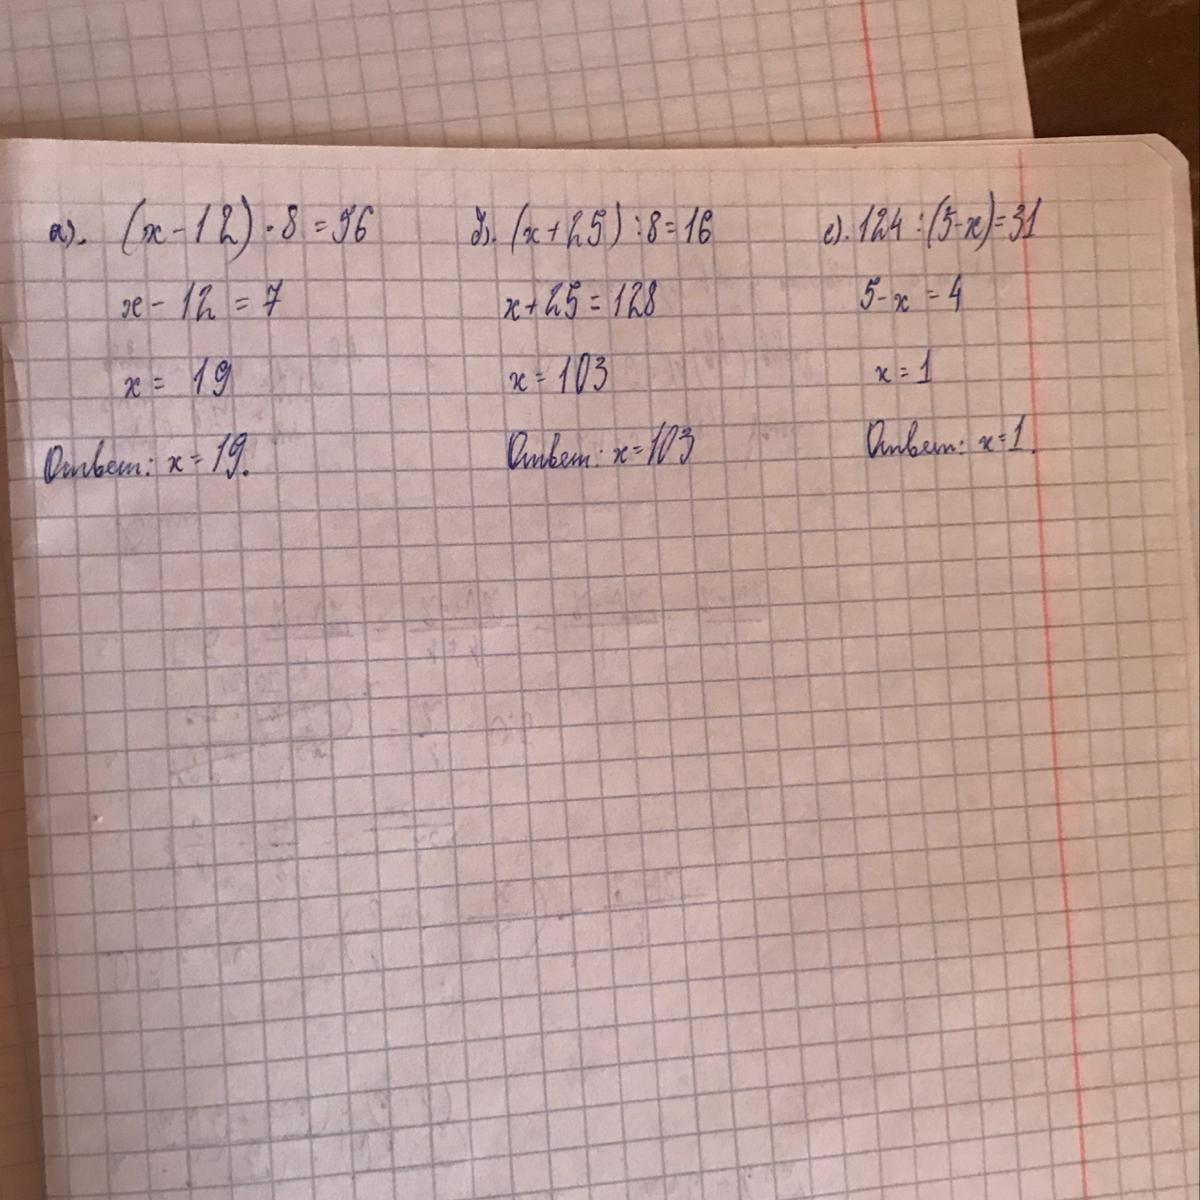 а). (x-12)·8=56
x-12=7
x=19
Ответ: x=19.
д). (x+25):8=16
x+25=128
x=103
Ответ: x=103
е). 124:(5-x)=31
5-x=4
x=1
Ответ: x=1.